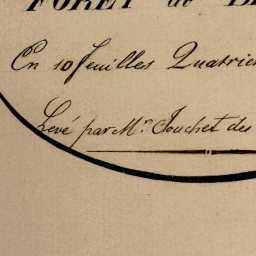 FORET de
En 10 feuilles Quatrie
Levé par Mr. Jouchet des